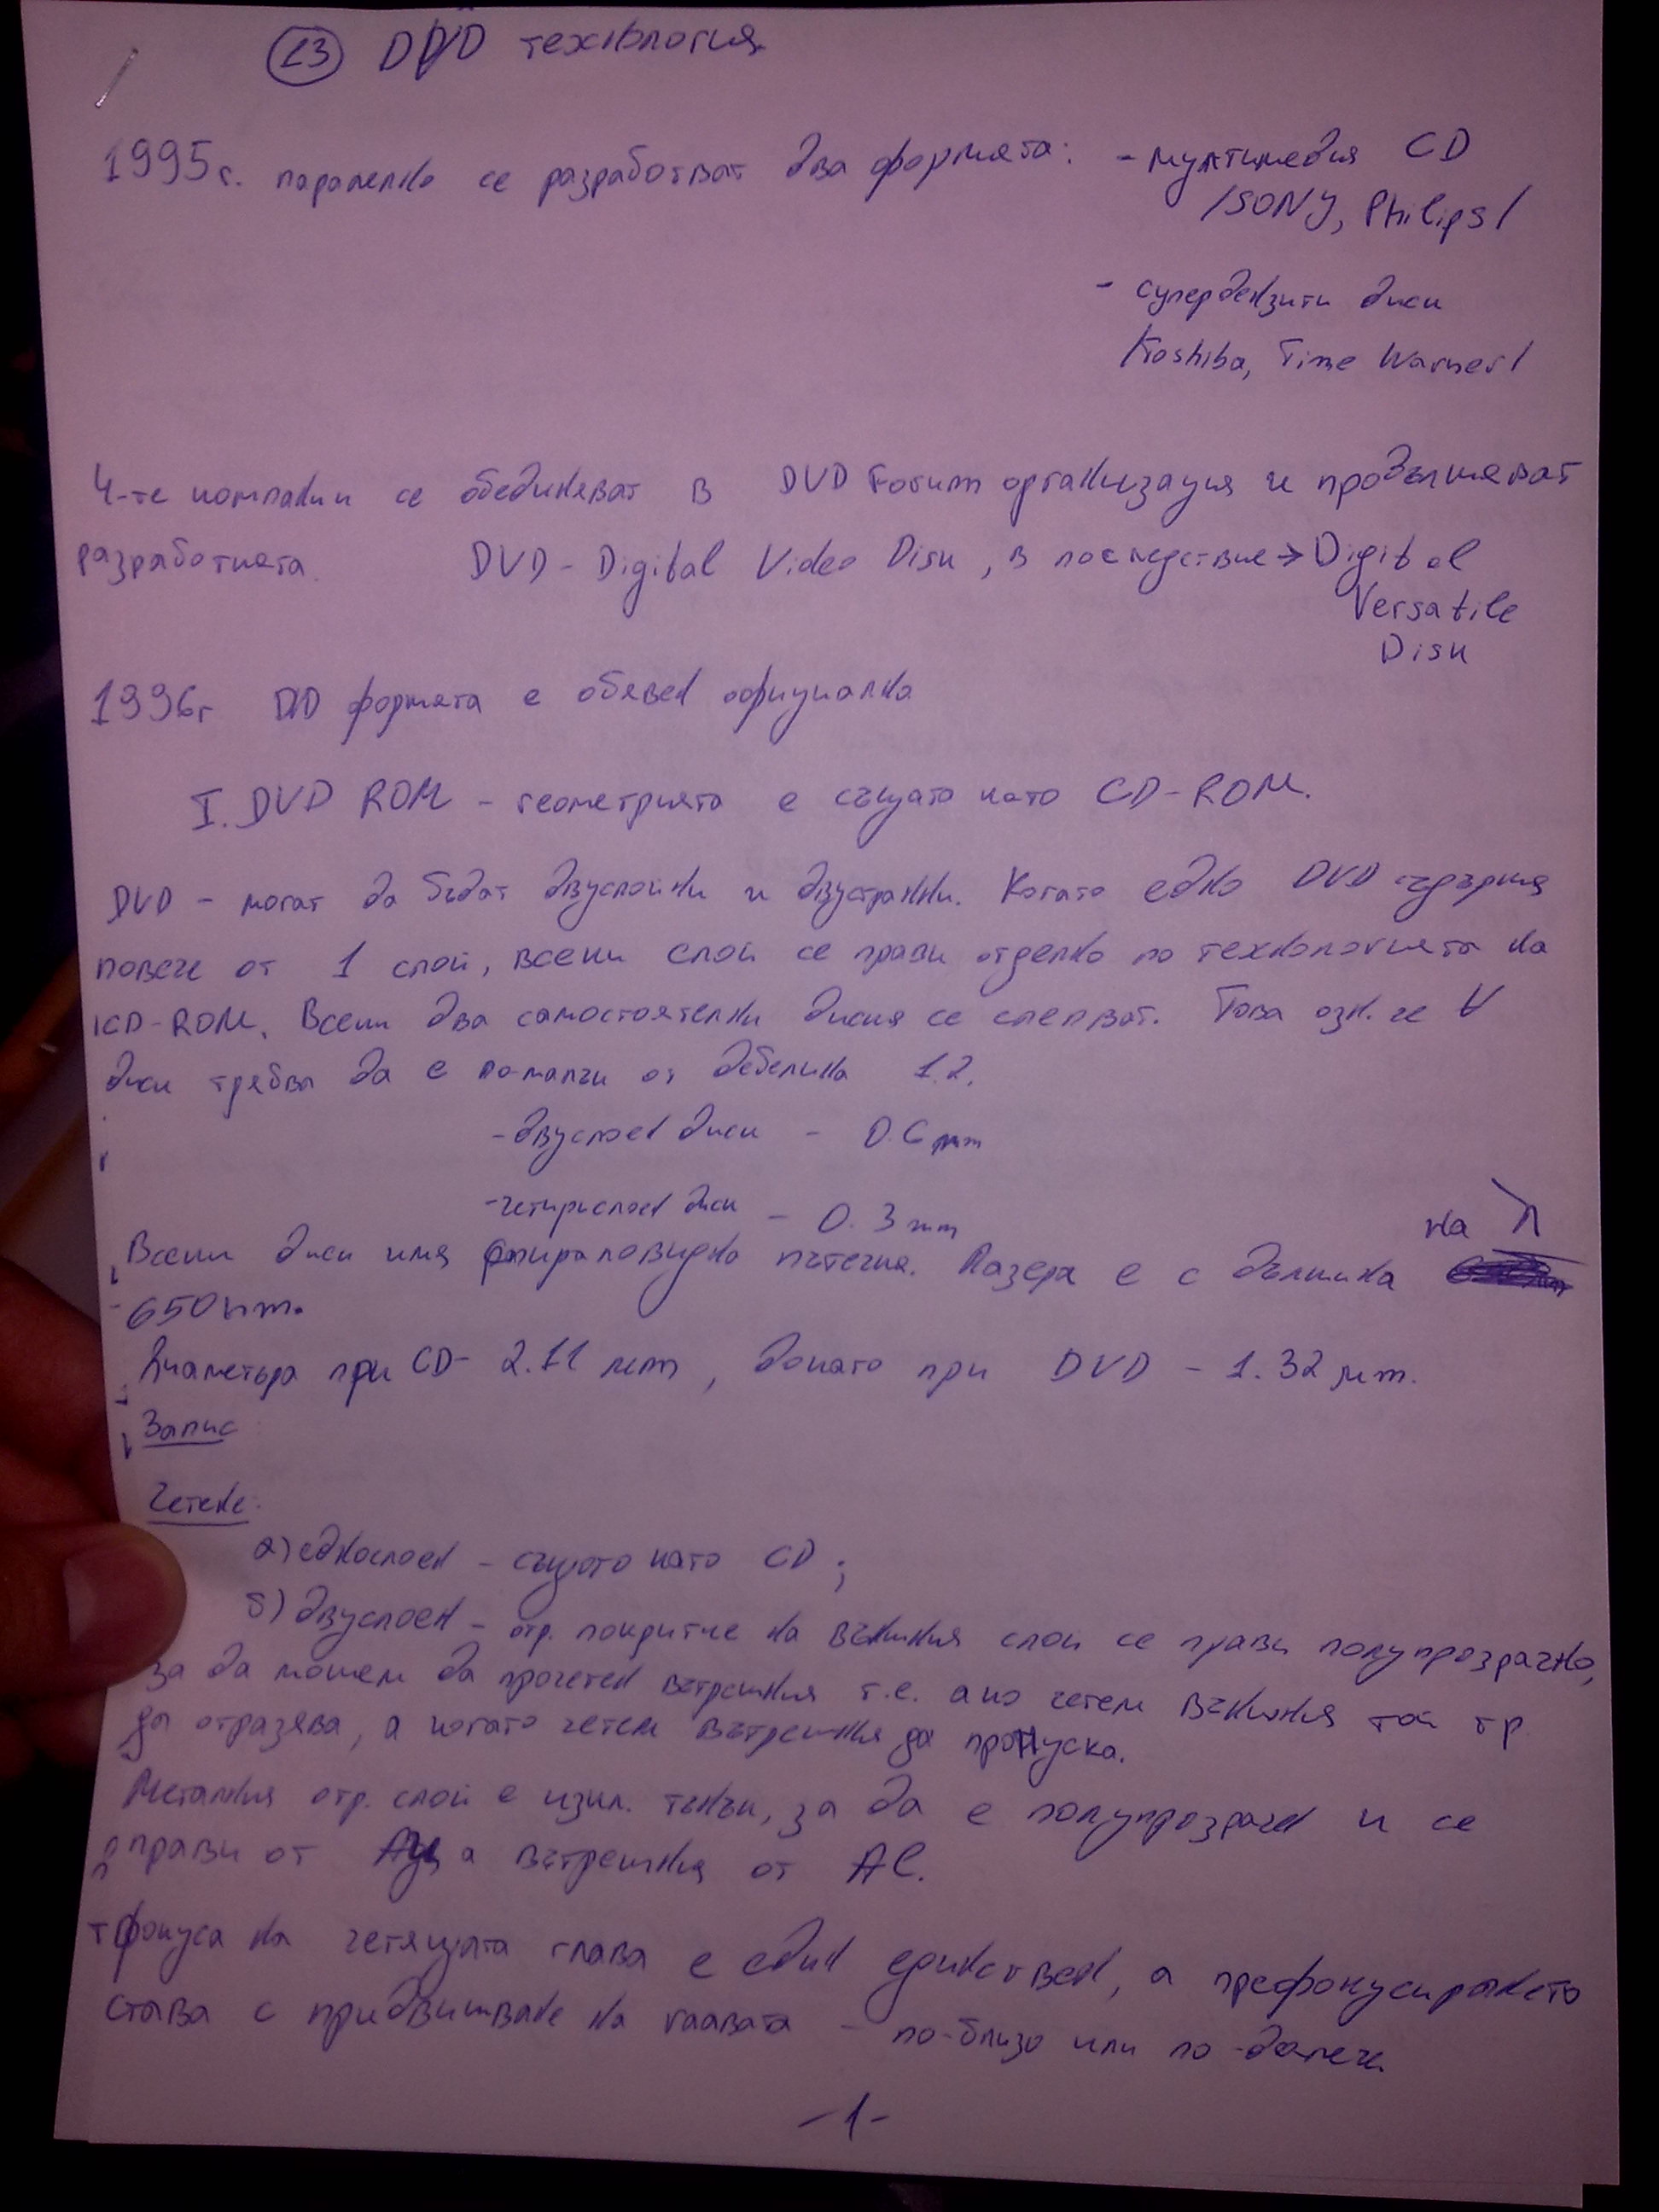 13 DVD технология
1995г. паралелно се разработват два формата: - мултимедия CD
/SONY, Philips/
- супердензити диск
/Toshiba, Time Warner/
4-те компании се обединяват в DVD Forum организация и продължават
разработката. DVD - Digital Video Disk, в последствие → Digital
Versatile
Disk
1996г DVD формата е обявен официално
I. DVD ROM - геометрията е същата като CD-ROM.
DVD - могат да бъдат двуслойни и двустранни. Когато едно DVD съдържа
повече от 1 слой, всеки слой се прави отделно по технологията на
CD-ROM. Всеки два самостоятелни диска се слепват. Това озн. че ∀
диск трябва да е по-малък от дебелина 1.2.
- двуслоен диск - 0.6 mm
- четирислоен диск - 0.3 mm
Всеки диск има спираловидна пътечка. Лазера е с дължина на λ
650 nm.
Диаметъра при CD - 2.11 μm, докато при DVD - 1.32 μm.
Запис
Четене:
а) еднослоен - същото като CD;
б) двуслоен - отр. покритие на външния слой се прави полупрозрачно,
за да можем да прочетем вътрешния т.е. ако четем външния той тр.
да отразява, а когато четем вътрешния да пропуска.
Металния отр. слой е изкл. тънък, за да е полупрозрачен и се
прави от Au, а вътрешния от Al.
Фокуса на четящата глава е един единствен, а префокусирането
става с придвижване на главата - по-близо или по-далече
-1-